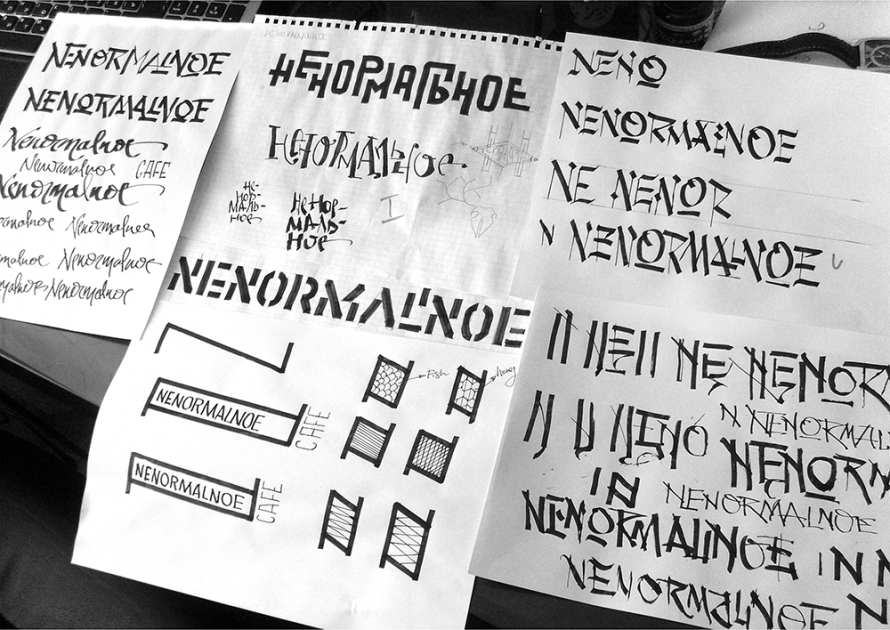 NENORMALNOE
NENORMALNOE
Nenormalnoe
Nenormalnoe CAFE
Nenormalnoe
Nenormalnoe
Nenormalnoe
Nenormalnoe
НЕНОРМАЛЬНОЕ
НЕНОРМАЛЬНОЕ
НЕНОРМАЛЬНОЕ
Не-
НОР-
МАЛЬ-
НОЕ
НеНОР-
МАЛЬ-
НОЕ
NENORMALNOE
Fish
honey
NENORMALNOE
CAFE
NENORMALNOE
CAFE
NENO
NENORMALNOE
NE NENOR
N NENORMALNOE
N NEN NE NENOR
N NENORMAL
N U NENO NENORM
IN NENORMALNOE
NENORMALNOE IN N
NENORMALNOE N